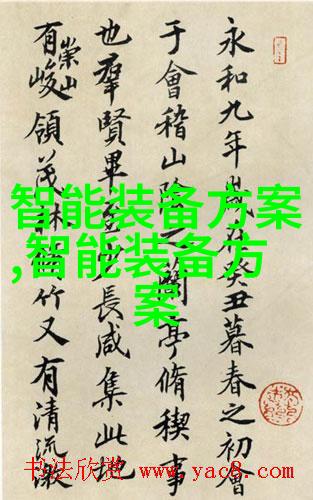 永和九年歲在癸丑暮春之初會
于會稽山陰之蘭亭脩稧事
也羣賢畢至少長咸集此地
有崇山峻領茂林脩竹又有清流激
智能装备方案
,智能装备方
案
书法欣赏 www.yac8.com